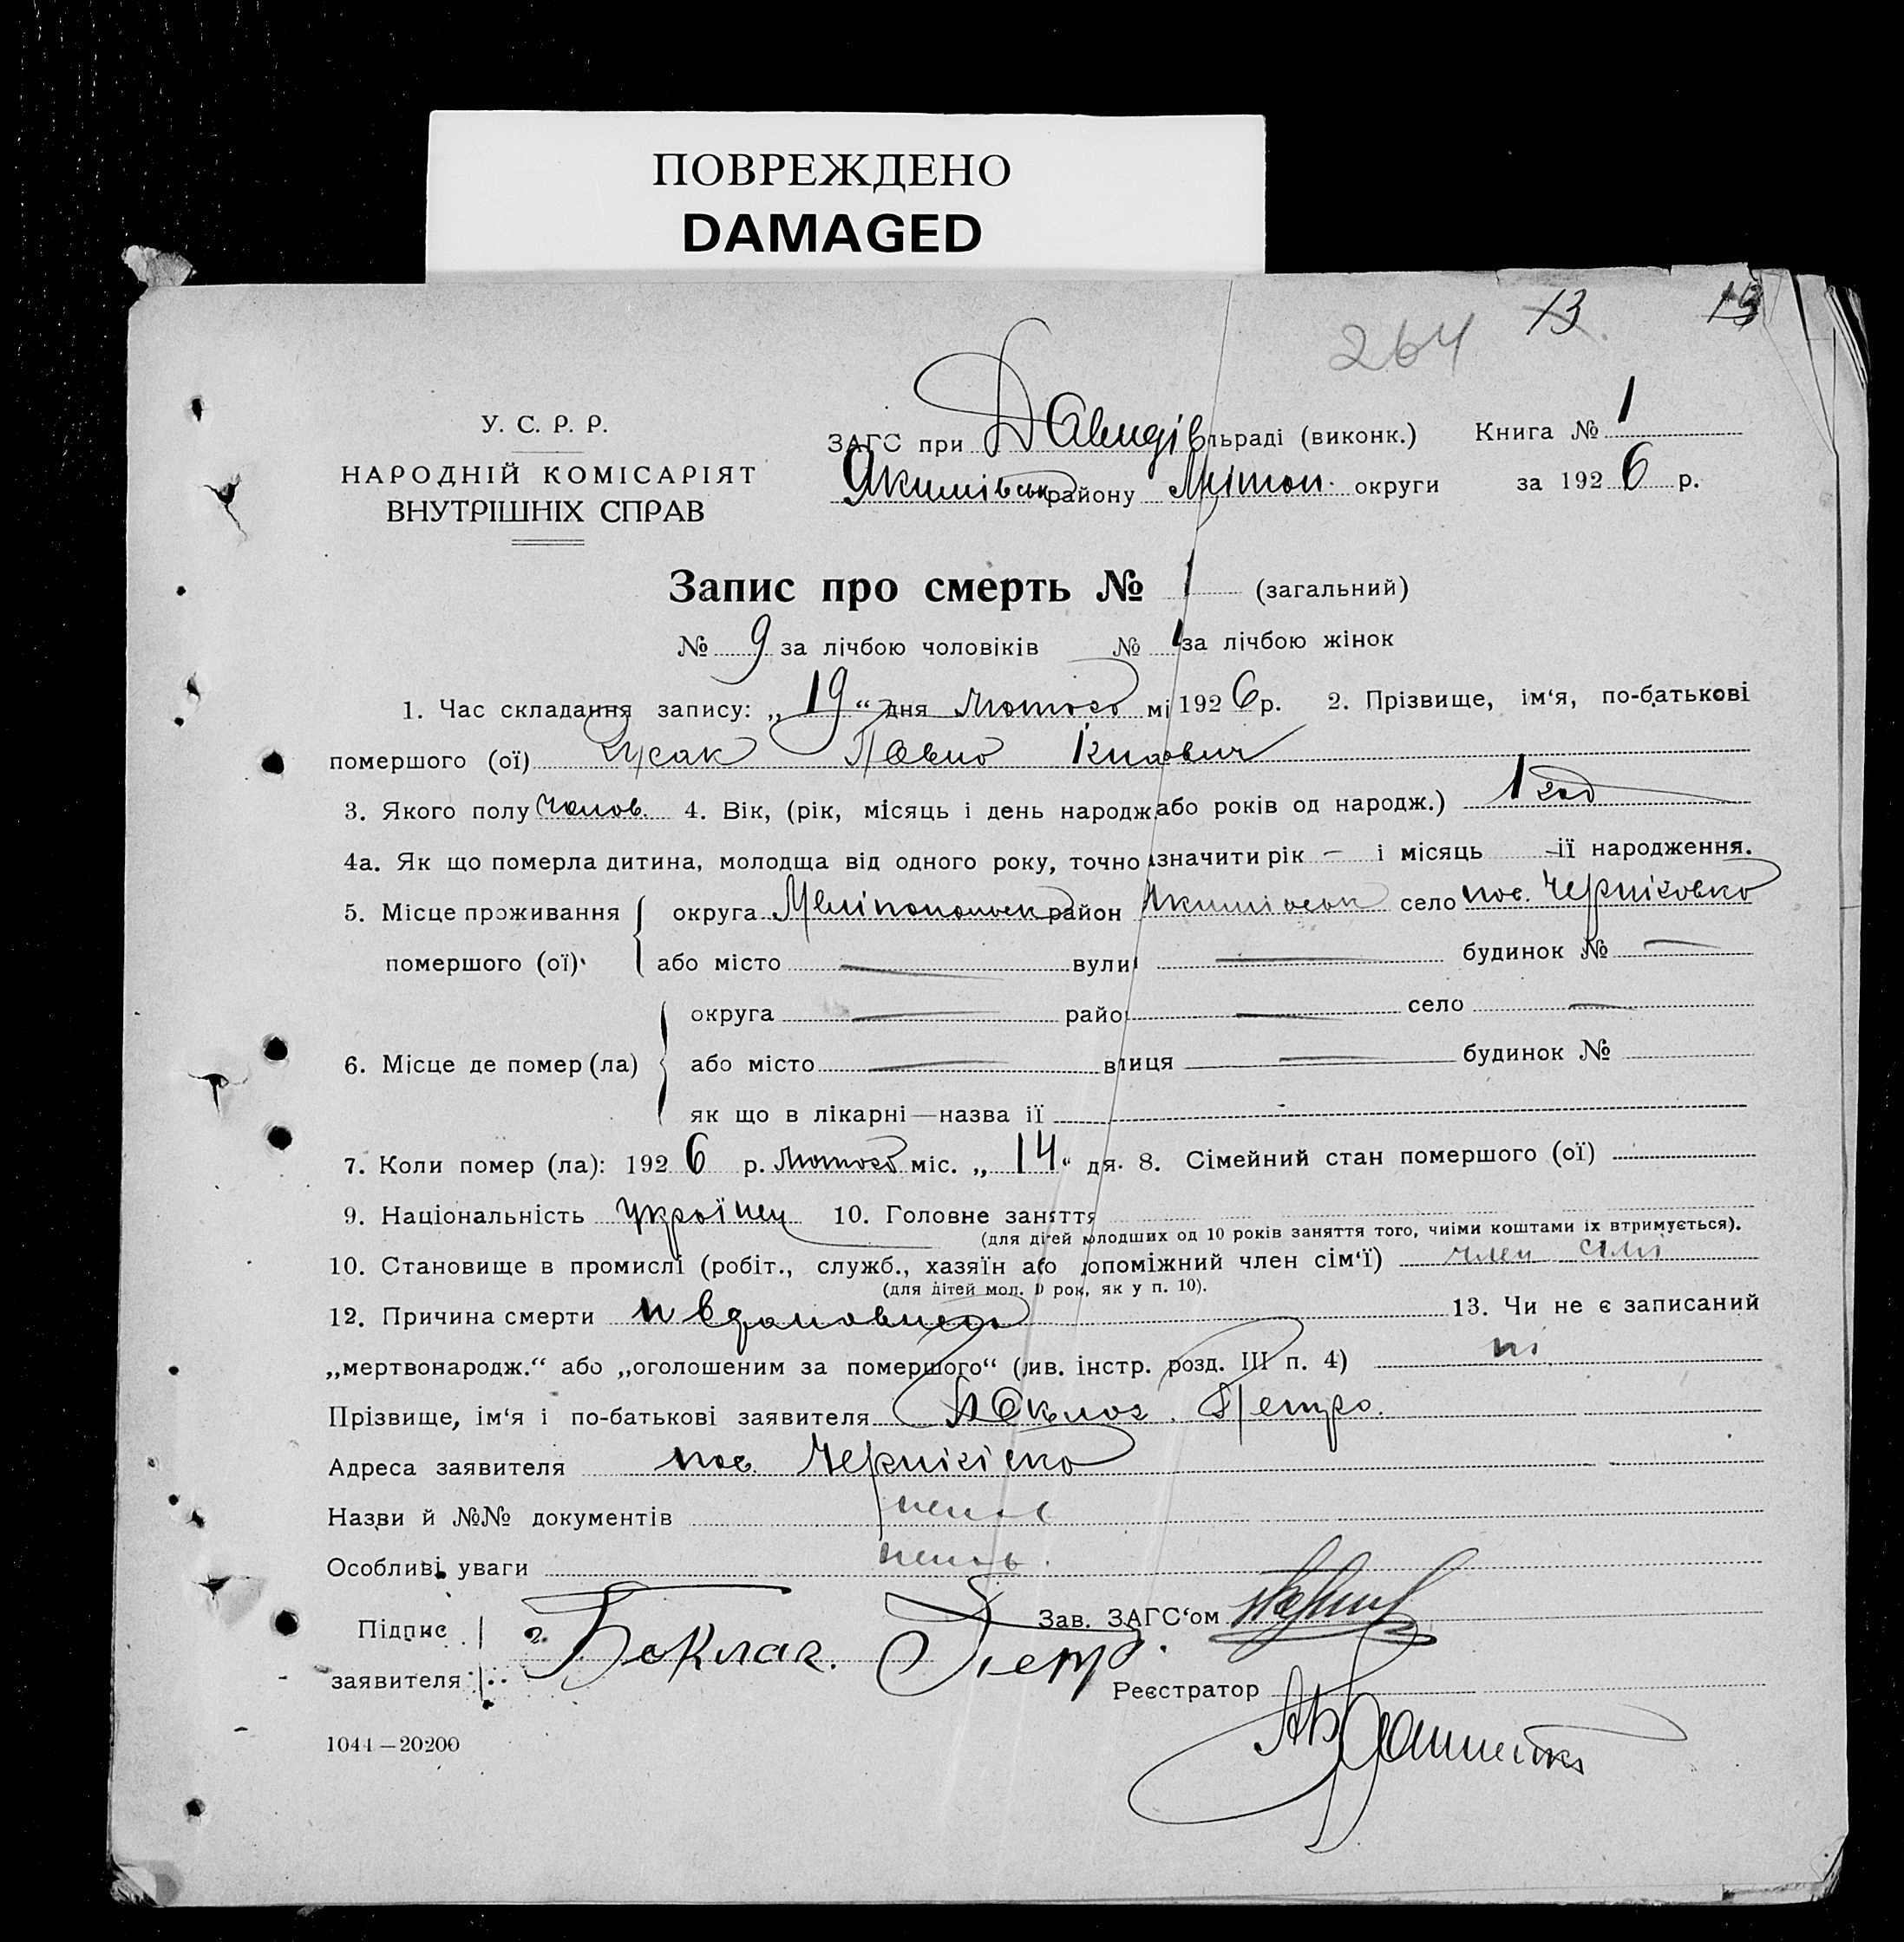 ПОВРЕЖДЕНО
DAMAGED
264 13 13
У. С. Р. Р.
НАРОДНІЙ КОМІСАРІЯТ
ВНУТРІШНІХ СПРАВ
ЗАГС при Давидів льраді (виконк.) Книга № 1
Якимівськ району Млітоп. округи за 1926 р.
Запис про смерть № 1 (загальний)
№ 9 за лічбою чоловіків № 1 за лічбою жінок
1. Час складання запису: „19“ дня Лютого мі 1926 р. 2. Прізвище, ім‘я, по-батькові
помершого (ої) Гусак Павло
3. Якого полу Чолов. 4. Вік, (рік, місяць і день народж або років од народж.) 1 год
4а. Як що померла дитина, молодща від одного року, точно азначити рік — і місяць — ії народження.
5. Місце проживання округа Меліпопольск район Якимівськ село пос. Черніговка
помершого (ої) або місто — вули — будинок № —
округа — райо — село —
6. Місце де помер (ла) або місто — влиця — будинок №
як що в лікарні—назва ії
7. Коли помер (ла): 1926 р. Лютого міс. „14“ дя. 8. Сімейний стан помершого (ої)
9. Національність Українец 10. Головне заняття
(для дітей молодших од 10 років заняття того, чиїми коштами іх втримується).
10. Становище в промислі (робіт., служб., хазяїн або допоміжний член сім‘ї) член сімі
(для дітей мол. 10 рок, як у п. 10).
12. Причина смерти 13. Чи не є записаний
„мертвонародж.“ або „оголошеним за помершого“ (див. інстр. розд. III п. 4) ні
Прізвище, ім‘я і по-батькові заявителя Петро.
Адреса заявителя пос. Чернігівка
Назви й №№ документів немає
Особливі уваги немає.
Підпис
заявителя г. Боклаг. Петр.
Зав. ЗАГС‘ом
Реєстратор
1044—20200